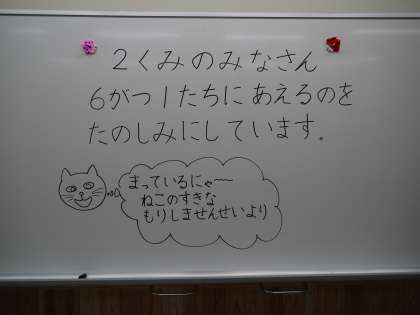 2くみのみなさん
6がつ1たちに あえるのを
たのしみにしています。
まっているにゃ〜
ねこのすきな
もりしませんせいより